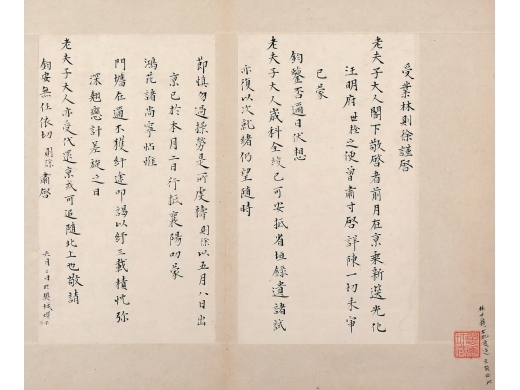 受業林則徐謹啓
老夫子大人閣下敬啓者前月在京乘新選光化
汪明府之便曾肅寸啓詳陳一切未審
已蒙
鈞鑒否邇日伏想
老夫子大人歲科全竣已可安抵省垣錄遺諸試
亦復以次就緒仍望隨時
節慎勿過操勞是所虔禱則徐以五月八日出
京已於本月二日行抵襄陽叨蒙
鴻庇諸尚平怗惟
門牆在邇不獲紆途叩謁以紓三載積忱彌
深翹戀計差旋之日
老夫子大人亦受代還京或可追隨北上也敬請
鈞安無任依切則徐肅啓
六月二日